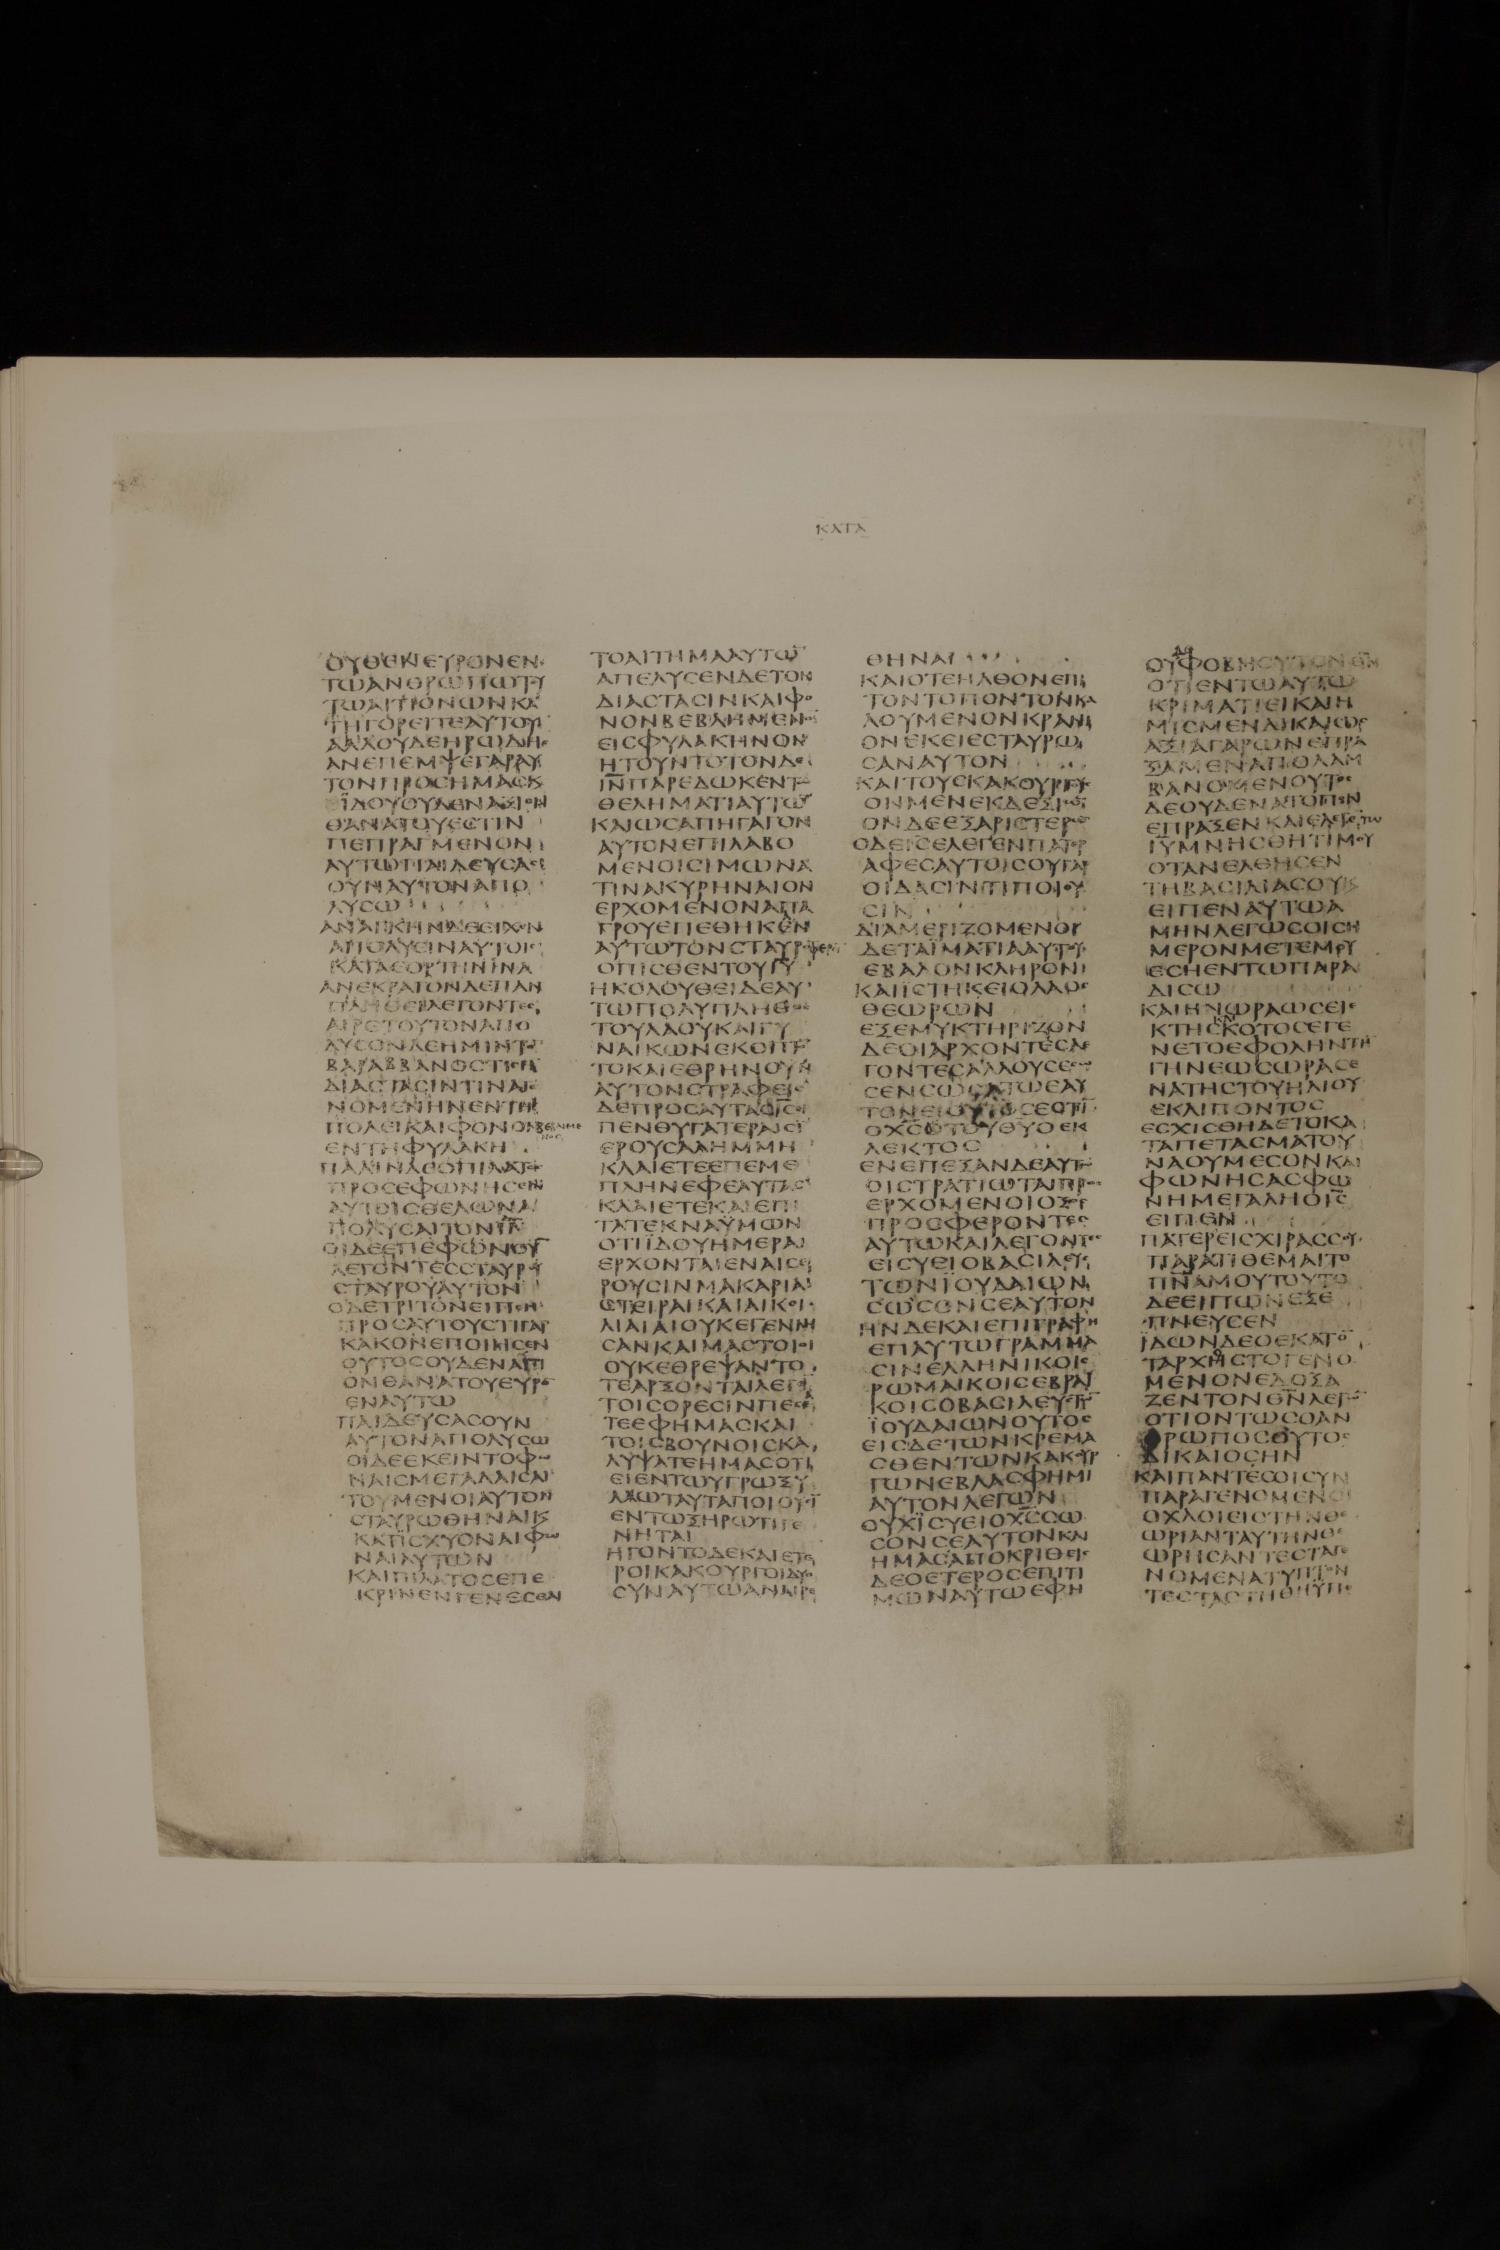 ΚΑΤΑ
ΟΥΘΕΝ ΕΥΡΟΝ ΕΝ
ΤΩΑΝΘΡΩΠΩΤΥ
ΤΩΑΙΤΙΟΝΩΝΚΑ
ΤΗΓΟΡΕΙΤΕΑΥΤΟΥ
ΑΛΛΟΥΔΕΗΡΩΔΗϹ
ΑΝΕΠΕΜΨΕΓΑΡΑΥ
ΤΟΝΠΡΟϹΗΜΑϹΚ
ΪΔΟΥΟΥΔΕΝΑΞΙΟΝ
ΘΑΝΑΤΟΥΕϹΤΙΝ
ΠΕΠΡΑΓΜΕΝΟΝ
ΑΥΤΩΠΑΙΔΕΥϹΑϹ
ΟΥΝΑΥΤΟΝΑΠΟ
ΛΥϹΩ
ΑΝΑΓΚΗΝΔΕΕΙΧΕΝ
ΑΠΟΛΥΕΙΝΑΥΤΟΙϹ
ΚΑΤΑΕΟΡΤΗΝΕΝΑ
ΑΝΕΚΡΑΓΟΝΔΕΠΑΝ
ΠΛΗΘΕΙΛΕΓΟΝΤΕϹ
ΑΙΡΕΤΟΥΤΟΝΑΠΟ
ΛΥϹΟΝΔΕΗΜΙΝΤΟ
ΒΑΡΑΒΒΑΝΟϹΤΙϹΗΝ
ΔΙΑϹΤΑϹΙΝΤΙΝΑΓΕ
ΝΟΜΕΝΗΝΕΝΤΗ
ΠΟΛΕΙΚΑΙΦΟΝΟΝΒΕΒΛΗΜΕ
ΝΟϹ
ΕΝΤΗΦΥΛΑΚΗ
ΠΑΛΙΝΔΕΟΠΙΛΑΤΟϹ
ΠΡΟϹΕΦΩΝΗϹΕΝ
ΑΥΤΟΙϹΘΕΛΩΝΑ
ΠΟΛΥϹΑΙΤΟΝΙΝ
ΟΙΔΕΕΠΕΦΩΝΟΥ
ΛΕΓΟΝΤΕϹϹΤΑΥΡΟΥ
ϹΤΑΥΡΟΥΑΥΤΟΝ
ΟΔΕΤΡΙΤΟΝΕΙΠΕΝ
ΠΡΟϹΑΥΤΟΥϹΤΙΓΑΡ
ΚΑΚΟΝΕΠΟΙΗϹΕΝ
ΟΥΤΟϹΟΥΔΕΝΑΙΤΙ
ΟΝΘΑΝΑΤΟΥΕΥΡΟ
ΕΝΑΥΤΩ
ΠΑΙΔΕΥϹΑϹΟΥΝ
ΑΥΤΟΝΑΠΟΛΥϹΩ
ΟΙΔΕΕΚΕΙΝΤΟΦΩ
ΝΑΙϹΜΕΓΑΛΑΙϹΑΙ
ΤΟΥΜΕΝΟΙΑΥΤΟΝ
ϹΤΑΥΡΩΘΗΝΑΙΚ
ΚΑΤΙϹΧΥΟΝΑΙΦΩ
ΝΑΙΑΥΤΩΝ
ΚΑΙΠΙΛΑΤΟϹΕΠΕ
ΚΡΙΝΕΝΓΕΝΕϹΘΑΙ
ΤΟΑΙΤΗΜΑΑΥΤΩ̅
ΑΠΕΛΥϹΕΝΔΕΤΟΝ
ΔΙΑϹΤΑϹΙΝΚΑΙΦΟ
ΝΟΝΒΕΒΛΗΜΕΝΟ
ΕΙϹΦΥΛΑΚΗΝΟΝ
ΗΤΟΥΝΤΟΤΟΝΔΕ
Ι̅Ν̅ΠΑΡΕΔΩΚΕΝΤΩ
ΘΕΛΗΜΑΤΙΑΥΤΩ̅
ΚΑΙΩϹΑΠΗΓΑΓΟΝ
ΑΥΤΟΝΕΠΙΛΑΒΟ
ΜΕΝΟΙϹΙΜΩΝΑ
ΤΙΝΑΚΥΡΗΝΑΙΟΝ
ΕΡΧΟΜΕΝΟΝΑΠΑ
ΓΡΟΥΕΠΕΘΗΚΕΝ
ΑΥΤΩΤΟΝϹΤΑΥΡΟ
ΟΠΙϹΘΕΝΤΟΥΙ̅Υ̅
ΗΚΟΛΟΥΘΕΙΔΕΑΥ
ΤΩΠΟΛΥΠΛΗΘΟϹ
ΤΟΥΛΑΟΥΚΑΙΓΥ
ΝΑΙΚΩΝΕΚΟΠΤΟ̅
ΤΟΚΑΙΕΘΡΗΝΟΥΝ
ΑΥΤΟΝϹΤΡΑΦΕΙϹ
ΔΕΠΡΟϹΑΥΤΑϹΟΙ̅Ϲ̅
ΠΕΝΘΥΓΑΤΕΡΑΙϹΙ
ΕΡΟΥϹΑΛΗΜΜΗ
ΚΛΑΙΕΤΕΕΠΕΜΕ
ΠΛΗΝΕΦΕΑΥΤΑϹ
ΚΛΑΙΕΤΕΚΑΙΕΠΙ
ΤΑΤΕΚΝΑΫΜΩΝ
ΟΤΙΪΔΟΥΗΜΕΡΑΙ
ΕΡΧΟΝΤΑΙΕΝΑΙϹΕ
ΡΟΥϹΙΝΜΑΚΑΡΙΑΙ
ϹΤΕΙΡΑΙΚΑΙΑΙΚΟΙ
ΛΙΑΙΑΙΟΥΚΕΓΕΝΝΗ
ϹΑΝΚΑΙΜΑϹΤΟΙΟΙ
ΟΥΚΕΘΡΕΨΑΝΤΟ
ΤΕΑΡΞΟΝΤΑΙΛΕΓΙ
ΤΟΙϹΟΡΕϹΙΝΠΕϹΕ
ΤΕΕΦΗΜΑϹΚΑΙ
ΤΟΙϹΒΟΥΝΟΙϹΚΑ
ΛΥΨΑΤΕΗΜΑϹΟΤΙ
ΕΙΕΝΤΩΥΓΡΩΞΥ
ΛΩΤΑΥΤΑΠΟΙΟΥϹΙ̅
ΕΝΤΩΞΗΡΩΤΙΓΕ
ΝΗΤΑΙ
ΗΓΟΝΤΟΔΕΚΑΙΕΤΕ
ΡΟΙΚΑΚΟΥΡΓΟΙΔΥΟ
ϹΥΝΑΥΤΩΑΝΑΙΡΕ
ΘΗΝΑΙ
ΚΑΙΟΤΕΗΛΘΟΝΕΠΙ
ΤΟΝΤΟΠΟΝΤΟΝΚΑ
ΛΟΥΜΕΝΟΝΚΡΑΝΙ
ΟΝΕΚΕΙΕϹΤΑΥΡΩ
ϹΑΝΑΥΤΟΝ
ΚΑΙΤΟΥϹΚΑΚΟΥΡΓΟΥϹ
ΟΝΜΕΝΕΚΔΕΞΙΩ
ΟΝΔΕΕΞΑΡΙϹΤΕΡΩ
ΟΔΕΙ̅Ϲ̅ΕΛΕΓΕΝΠΑΤΕΡ
ΑΦΕϹΑΥΤΟΙϹΟΥΓΑΡ
ΟΙΔΑϹΙΝΤΙΠΟΙΟΥ
ϹΙΝ
ΔΙΑΜΕΡΙΖΟΜΕΝΟΙ
ΔΕΤΑΪΜΑΤΙΑΑΥΤΟΥ
ΕΒΑΛΟΝΚΛΗΡΟΝ
ΚΑΙΪϹΤΗΚΕΙΟΛΑΟϹ
ΘΕΩΡΩΝ
ΕΞΕΜΥΚΤΗΡΙΖΟΝ
ΔΕΟΙΑΡΧΟΝΤΕϹΛΕ
ΓΟΝΤΕϹΑΛΛΟΥϹΕϹΩ
ϹΕΝϹΩϹΑΤΩΕΑΥ
ΤΟΝΕΙΟΥΤΟϹΕϹΤΙ̅
ΟΧ̅Ϲ̅ΟΤΟΥΘ̅Υ̅ΟΕΚ
ΛΕΚΤΟϹ
ΕΝΕΠΕΞΑΝΔΕΑΥΤΩ
ΟΙϹΤΡΑΤΙΩΤΑΙΠΡΟϹ
ΕΡΧΟΜΕΝΟΙΟΞΟϹ
ΠΡΟϹΦΕΡΟΝΤΕϹ
ΑΥΤΩΚΑΙΛΕΓΟΝΤΕϹ
ΕΙϹΥΕΙΟΒΑϹΙΛΕΥϹ
ΤΩΝΪΟΥΔΑΙΩΝ
ϹΩϹΟΝϹΕΑΥΤΟΝ
ΗΝΔΕΚΑΙΕΠΙΓΡΑΦΗ
ΕΠΑΥΤΩΓΡΑΜΜΑ
ϹΙΝΕΛΛΗΝΙΚΟΙϹ
ΡΩΜΑΙΚΟΙϹΕΒΡΑΪ
ΚΟΙϹΟΒΑϹΙΛΕΥϹΤΩ̅
ΪΟΥΔΑΙΩΝΟΥΤΟϹ
ΕΙϹΔΕΤΩΝΚΡΕΜΑ
ϹΘΕΝΤΩΝΚΑΚΟΥΡ
ΓΩΝΕΒΛΑϹΦΗΜΙ
ΑΥΤΟΝΛΕΓΩΝ
ΟΥΧΪϹΥΕΙΟΧ̅Ϲ̅ϹΩ
ϹΟΝϹΕΑΥΤΟΝΚΑΙ
ΗΜΑϹΑΠΟΚΡΙΘΕΙϹ
ΔΕΟΕΤΕΡΟϹΕΠΙΤΙ
ΜΩΝΑΥΤΩΕΦΗ
ΟΥΦΟΒΗϹΥΤΟΝΘ̅Ν̅
ΟΤΙΕΝΤΩΑΥΤΩ
ΚΡΙΜΑΤΙΕΙΚΑΙΗ
ΜΙϹΜΕΝΔΙΚΑΙΩϹ
ΑΞΙΑΓΑΡΩΝΕΠΡΑ
ΞΑΜΕΝΑΠΟΛΑΜ
ΒΑΝΟΜΕΝΟΥΤΟϹ
ΔΕΟΥΔΕΝΑΤΟΠΟΝ
ΕΠΡΑΞΕΝΚΑΙΕΛΕΓΕΤΩ
Ι̅Υ̅ΜΝΗϹΘΗΤΙΜΟΥ
ΟΤΑΝΕΛΘΗϹΕΝ
ΤΗΒΑϹΙΛΙΑϹΟΥΚ
ΕΙΠΕΝΑΥΤΩΑ
ΜΗΝΛΕΓΩϹΟΙϹΗ
ΜΕΡΟΝΜΕΤΕΜΟΥ
ΕϹΗΕΝΤΩΠΑΡΑ
ΔΙϹΩ
ΚΑΙΗΝΩΡΑΩϹΕΙΕ
ΚΤΗϹΚΟΤΟϹΕΓΕ
ΝΕΤΟΕΦΟΛΗΝΤΗ̅
ΓΗΝΕΩϹΩΡΑϹΕ
ΝΑΤΗϹΤΟΥΗΛΙΟΥ
ΕΚΛΙΠΟΝΤΟϹ
ΕϹΧΙϹΘΗΔΕΤΟΚΑ
ΤΑΠΕΤΑϹΜΑΤΟΥ
ΝΑΟΥΜΕϹΟΝΚΑΙ
ΦΩΝΗϹΑϹΦΩ
ΝΗΜΕΓΑΛΗΟΙ̅Ϲ̅
ΕΙΠΕΝ
ΠΑΤΕΡΕΙϹΧΙΡΑϹϹΟΥ
ΠΑΡΑΤΙΘΕΜΑΙΤΟ
Π̅Ν̅ΑΜΟΥΤΟΥΤΟ
ΔΕΕΙΠΩΝΕΞΕ
ΠΝΕΥϹΕΝ
ΪΔΩΝΔΕΟΕΚΑΤΟ̅
ΤΑΡΧΗϹΤΟΓΕΝΟ
ΜΕΝΟΝΕΔΟΞΑ
ΖΕΝΤΟΝΘ̅Ν̅ΛΕΓΩ
ΟΤΙΟΝΤΩϹΟΑΝ
ΘΡΩΠΟϹΟΥΤΟϹ
ΔΙΚΑΙΟϹΗΝ
ΚΑΙΠΑΝΤΕϹΟΙϹΥΝ
ΠΑΡΑΓΕΝΟΜΕΝΟΙ
ΟΧΛΟΙΕΙϹΤΗΝΘΕ
ΩΡΙΑΝΤΑΥΤΗΝΘΕ
ΩΡΗϹΑΝΤΕϹΤΑΓΕ
ΝΟΜΕΝΑΤΥΠΤΟΝ
ΤΕϹΤΑϹΤΗΘΗΥΠΕ